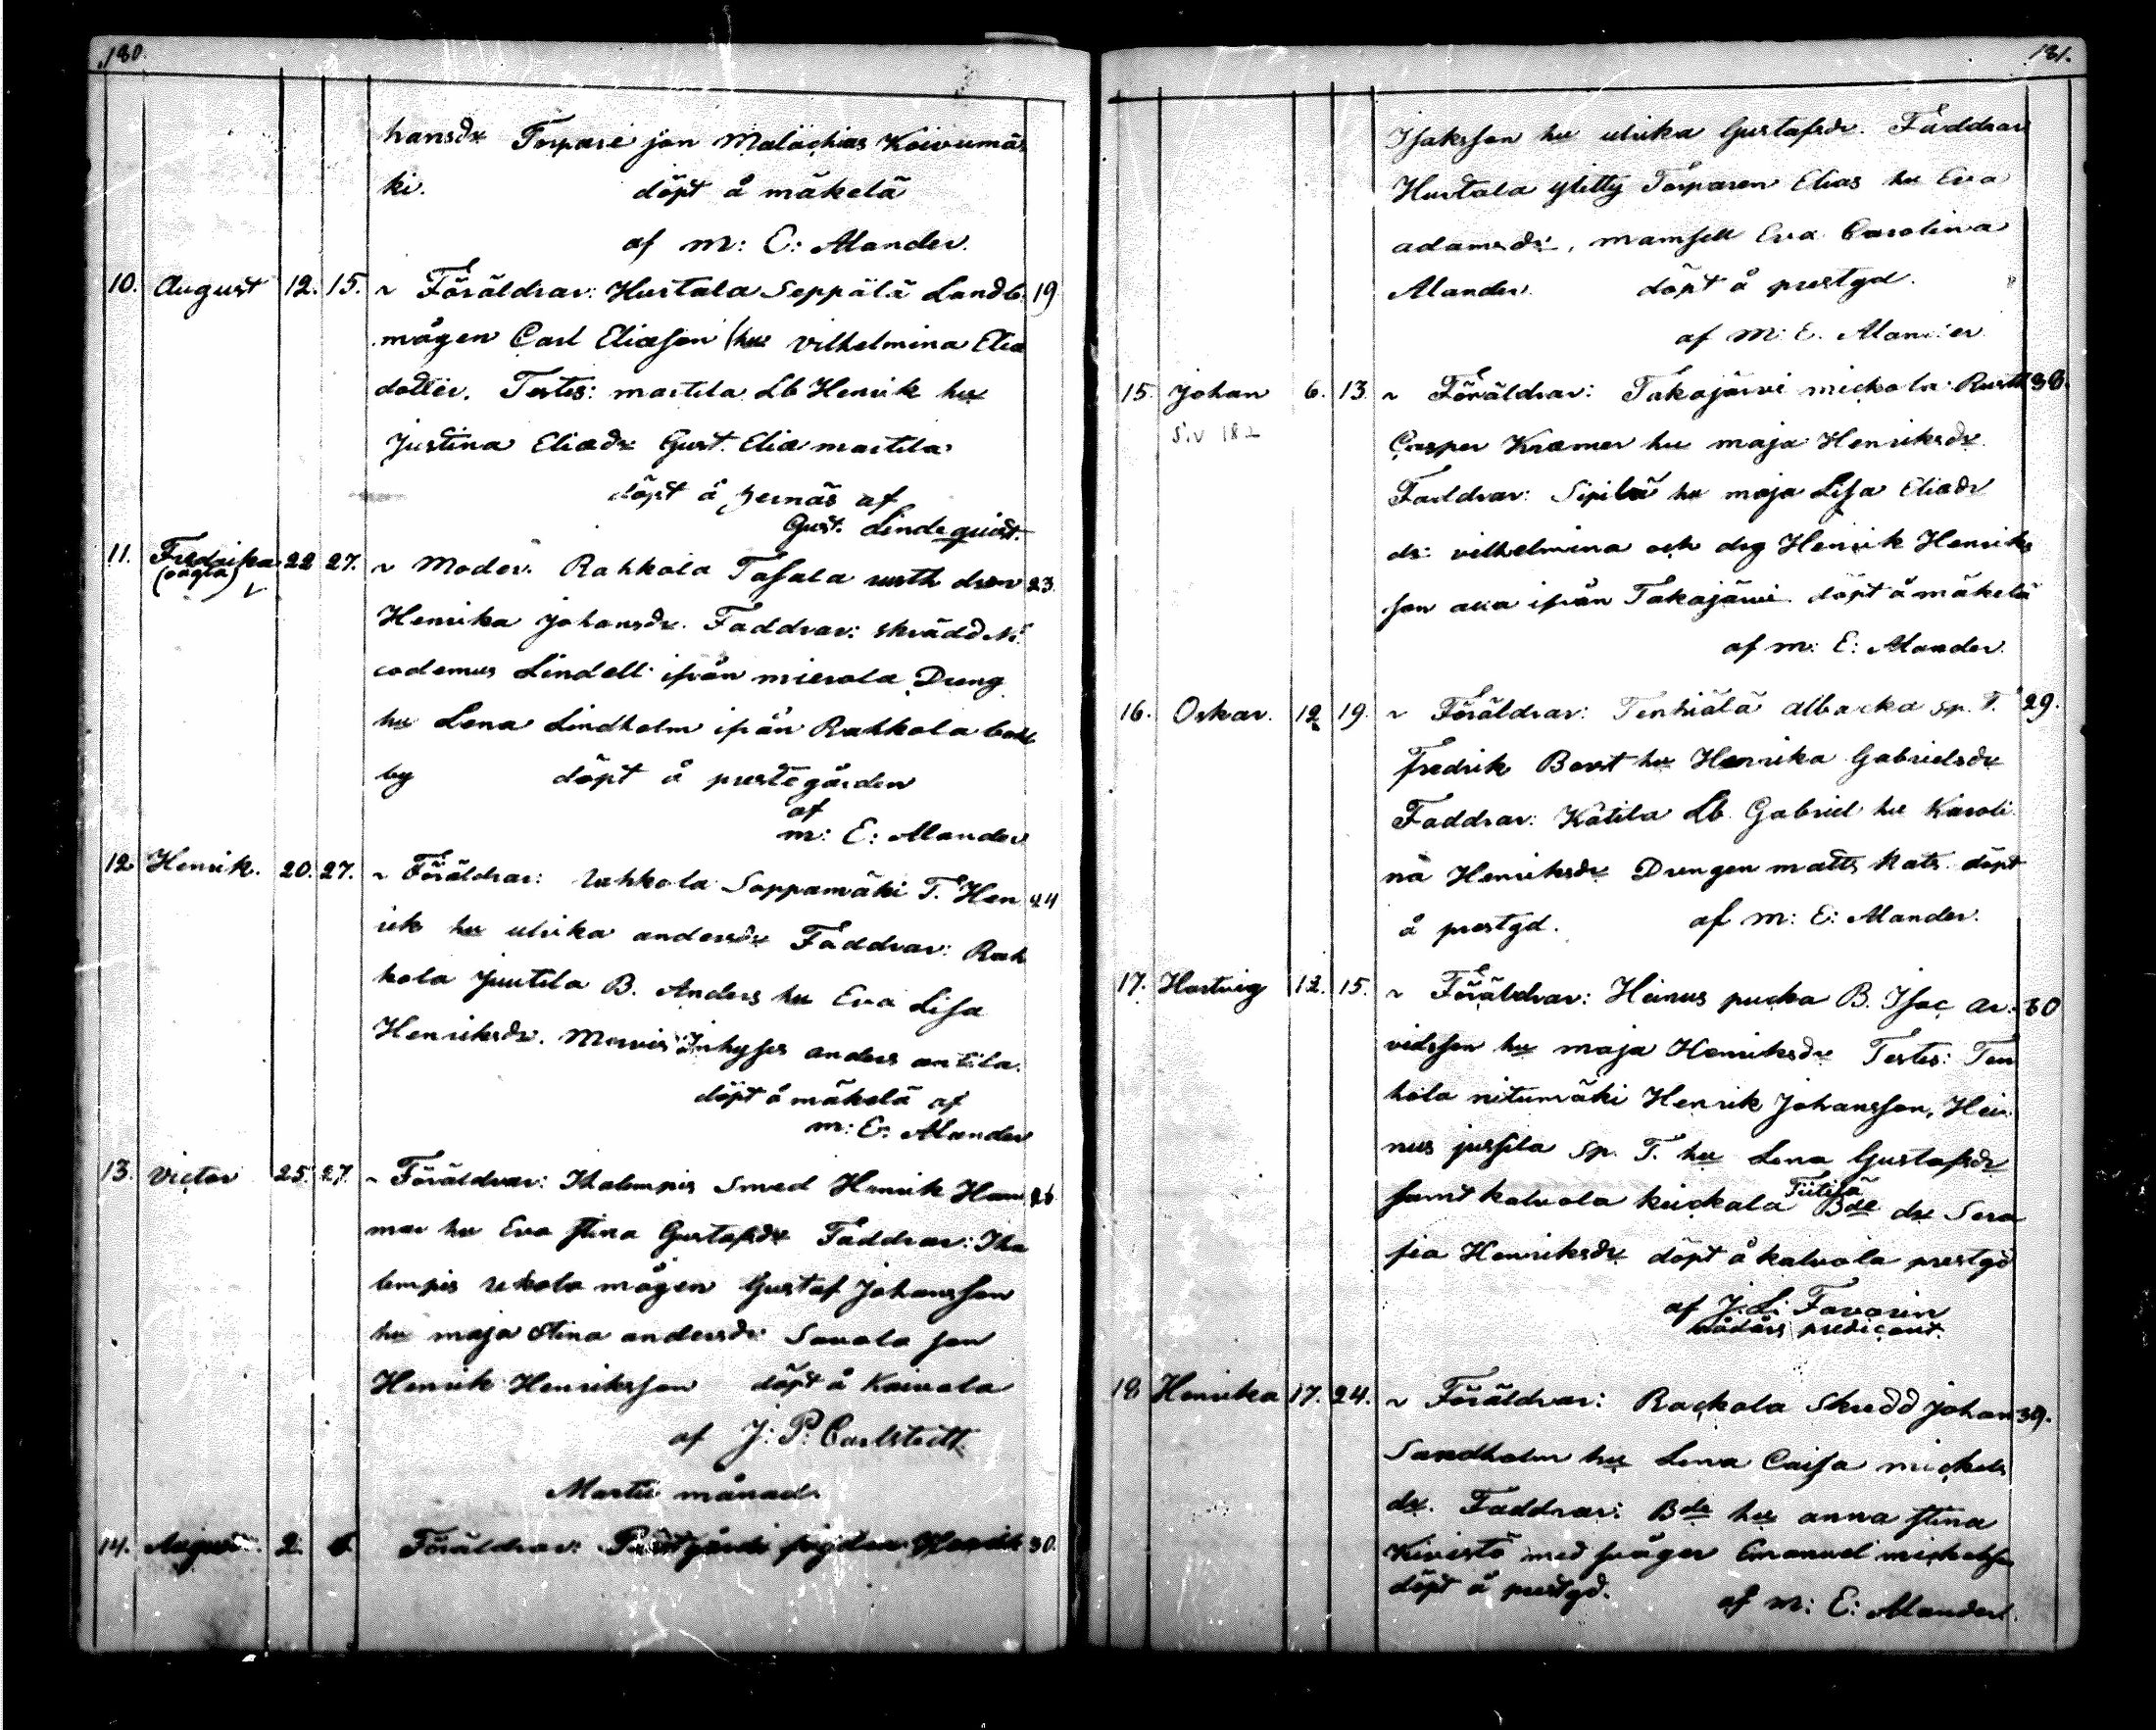 180.
hansdr Torpare son Malachias Koivumäs
ki. döpt å mäkelä
af M: E: Alander.
10. August 12. 15. ~ Föräldrar: Hurtala Seppälä Landb. 19
mågen Carl Eliasson hu Vilhelmina Elia
dotter. Testes: martila Lb Henrik hu
Justina Eliadr Gust. Elia martila
döpt å Jernäs af
Gust. Lindequist.
11. Fredrika 22 27. ~ Moder. Rahkola Tasala rusth dren 23.
(oägta)
Henrika Johansdr. Faddrar: skrädd Ni
codemus Lindell ifrån mierola Dreng
hu Lena Lindholm ifrån Rahkola back
by döpt å prestegården
af
m: E: Alander
12 Henrik. 20. 27. ~ Föräldrar: Rahkola Soppamäki T. Hen 24
rik hu ulrika andersdr Faddrar: Rah
kola Juutila B. Anders hu Eva Lisa
Henriksdr. Inhyses anders antila.
döpt å mäkelä af
m: E: Alander
13. Victor 25. 27. ~ Föräldrar: Ihalempis Smed Henrik Ham 26
mar hu Eva stina Gustafsdr Faddrar: Iha
lempis ukola mågen Gustaf Johansson
hu maja stina andersdr Sauala son
Henrik Henriksson döpt å Koivola
af J: P: Carlstedt
Martii månad.
14. August. 2. 6. Föräldrar: Henrik 30.
181.
Isaksson hu ulrika Gustafsdr. Faddrar
Hurtala ylitty Torparen Elias hu Eva
adamsdr, mamsell Eva Carolina
Alander. döpt å prestgd.
af M: E. Alander
15. Johan 6. 13. ~ Föräldrar: Takajärvi mickola Rusth 38
S:v 182
Casper Kræmer hu maja Henriksdr.
Faddrar: Sipilä hu maja Lisa Eliadr
dr: vilhelmina och drg Henrik Henriks
son alla ifrån Takajärvi döpt å mäkelä
af m: E: Alander.
16. Oskar. 12 19. ~ Föräldrar: Tenhiälä albacka sp. T. 29.
Fredrik Berit hu Henrika Gabrielsdr
Faddrar: Katila Lb. Gabriel hu Karoli
na Henriksdr Drengen matts Mats. döpt
å prestgd. af m: E: Alander.
17. Hartvig 12. 15. ~ Föräldrar: Heinus pucka B. Isac Ar- 30
vidsson hu maja Henriksdr Testes: Ten
hola nitumäki Henrik Johansson, Hei
nus jussila sp. T. hu Lena Gustafsdr
Tiitilä
samt kalvola keickala Bde dr Sera
fia Henriksdr döpt å kalvola prestgd
af J. L: Favorin
nådårs predicant.
18 Henrika 17. 24. ~ Föräldrar: Rackola Skredd Johan 39.
Sandholm hu Lena Caisa mickels
dr. Faddrar: Bde hu anna stina
Kivistö med svåger Emanuel mickelsson
döpt å prestgd. af m: E: Alander.